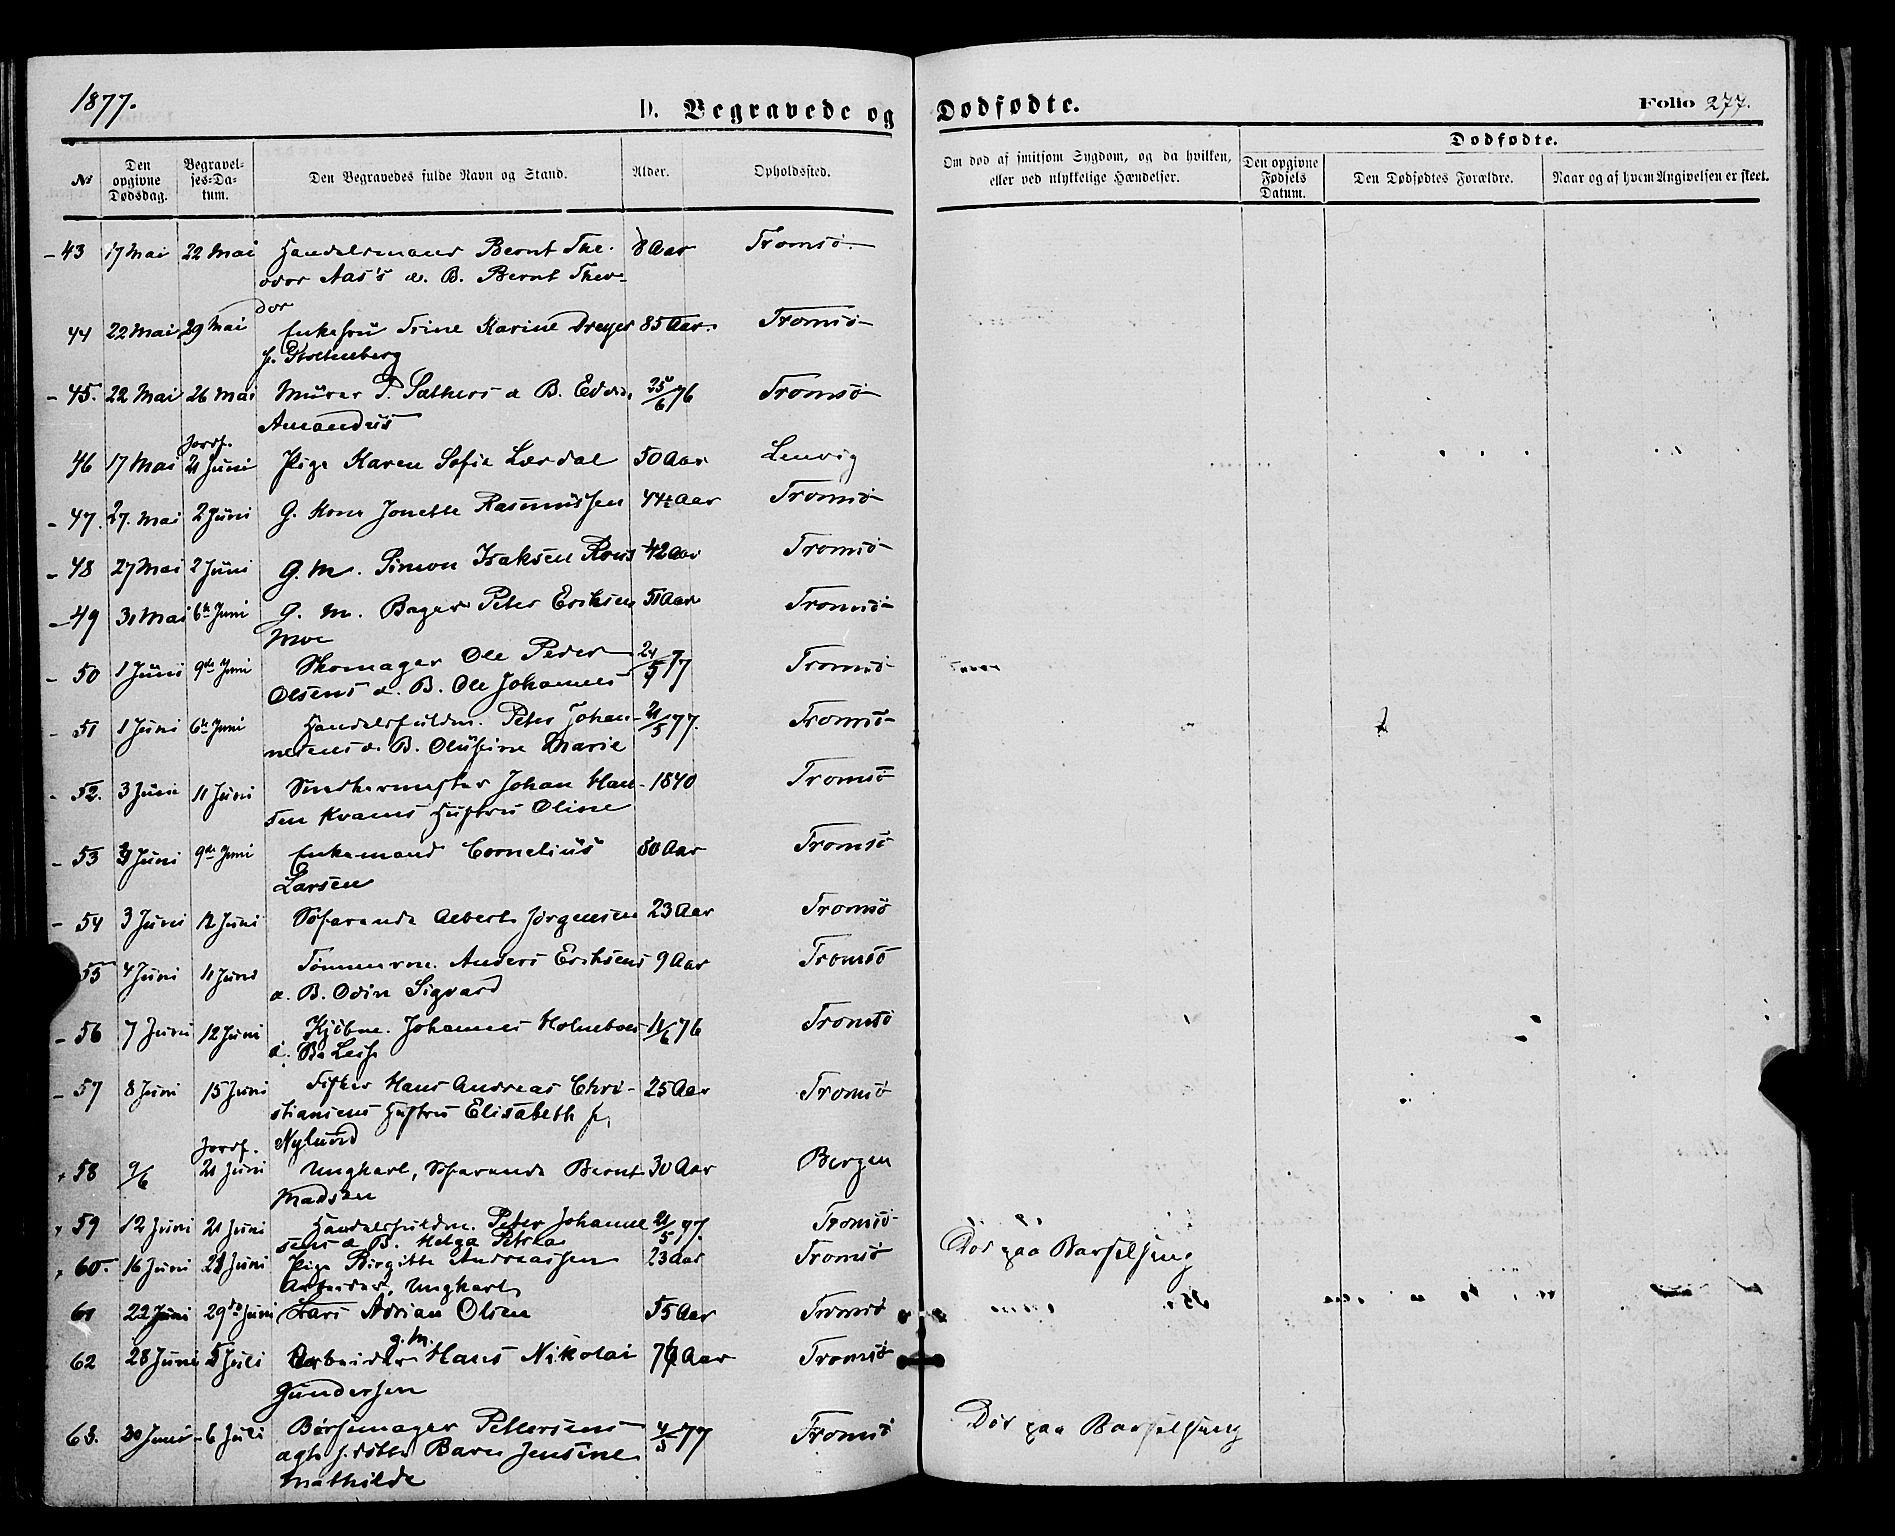 1877.
D. Begravede og Dødfødte.
Folio 277.
Dødfødte.
№
Den opgivne Dødsdag.
Begravelses-Datum.
Den Begravedes fulde Navn og Stand.
Alder.
Opholdssted.
Om død af smitsom Sygdom, og da hvilken, eller ved ulykkelige Hændelser.
Den opgivne Fødsels Datum.
Den Dødfødtes Forældre.
Naar og af hvem Angivelsen er skeet.
43 17 Mai 22 Mai Handelsmand Bernt The- 8 Aar Tromsö
odor Aas's æ. B. Bernt Theo-
dor
44 22 Mai 29 Mai Enkefru Trine Karine Dreyer 85 Aar. Tromsö
f. Stoltenberg
45. 22 Mai 26 Mai Murer P. Sæthers æ B. Edvin 25/6 76 Tromsö
Amandus
Jordf.
46 17 Mai 21 Juni Pige Karen Sofie Lærdal 50 Aar Lenvig
47. 27. Mai 2 Juni G. Kone Jonette Rasmussen 44½ Aar Tromsö
48 27 Mai 2 Juni G. M. Simon Isaksen 42 Aar Tromsö
49 31 Mai 6te Juni G. M. Bager Peter Eriksen 51 Aar Tromsö
Moe
50 1 Juni 9de Juni Skomager Ole Peder 24/5 77 Tromsö
Olsens æ. B. Ole Johannes
51 1 Juni 6te Juni Handelsfuldm. Peter Johan- 21/5 77. Tromsö
nesens æ. B. Olufine Marie
52. 3 Juni 11 Juni Snedkermester Johan Han- 1840 Tromsö
sen Kræmers Hustru Oline
53 3 Juni 9de Juni Enkemand Cornelius 80 Aar Tromsö
Larsen
54 3 Juni 12 Juni Söfarende Albert Jörgensen 23 Aar Tromsö
55 4 Juni 11 Juni Tömmerm. Anders Eriksens 9 Aar Tromsö
æ. B. Odin Sigvard
56 7 Juni 12 Juni Kjöbm. Johannes Holmboes 11/6 76 Tromsö
æ. B. Leif
57 8 Juni 15 Juni Fisker Hans Andreas Chri- 25 Aar Tromsö
stiansens Hustru Elisabeth f.
Nylund
Jordf.
58 9/6 21 Juni Ungkarl, Söfarende Bernt 30 Aar Bergen
Madsen
59 12 Juni 21 Juni Handelsfuldm. Peter Johanne 21/5 77. Tromsö
sens æ B. Helga Petrea
60. 16 Juni 22 Juni Pige Birgitte Andreassen 23 Aar Tromsö Död paa Barselseng
Arbeider, Ungkarl
61 22 Juni 29de Juni Lars Adrian Olsen 55 Aar Tromsö
g. M.
62 28 Juni 5 Juli Arbeider Hans Nikolai 76 Aar Tromsö
Gundersen
63. 30 Juni 6 Juli Börsemager Pettersens 4/3 77 Tromsö Död paa Barselseng
ægtef. Barn Jensine
Mathilde